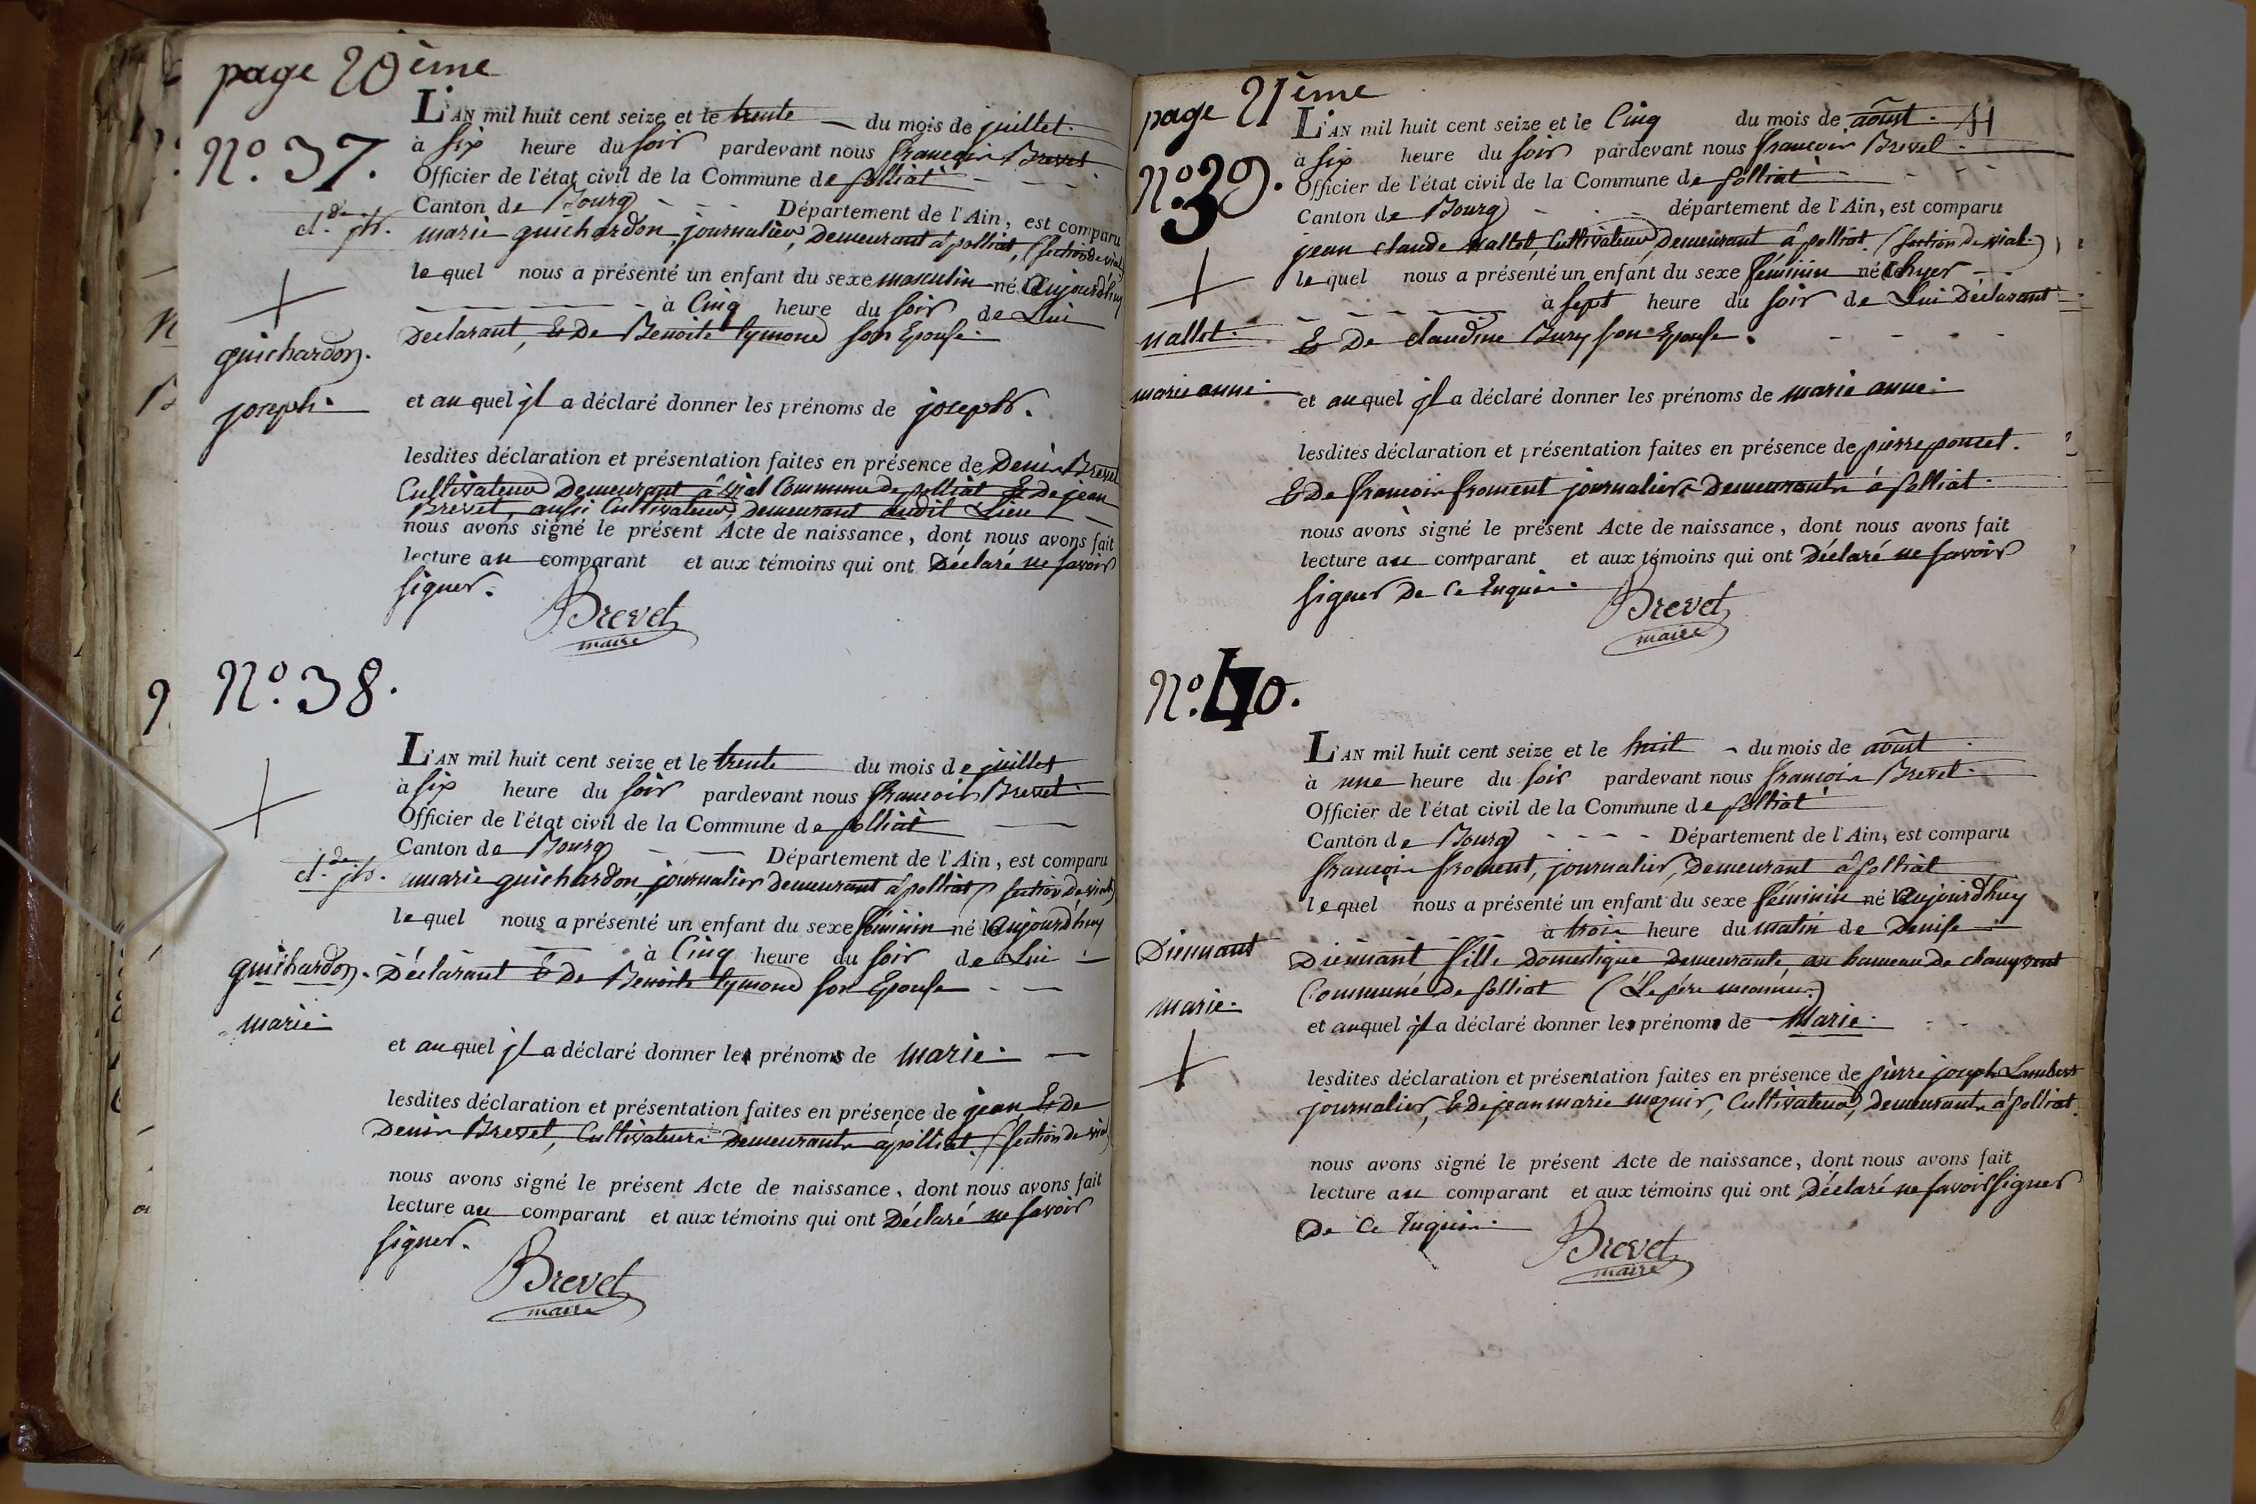 page 20ème
N.o 37.
L'AN mil huit cent seize et le trente du mois de juillet.
à six heure du soir pardevant nous françois Brevet
Officier de l'état civil de la Commune de polliat
Canton de Bourg Département de l'Ain, est comparu
marie guichardon, journalier, Demeurant à polliat, (section de vial)
le quel nous a présenté un enfant du sexe masculin né aujourd'huy
à Cinq heure du soir de Lui
Déclarant, & De Benoite Symond son Epouse.
guichardon.
joseph.
et au quel jl a déclaré donner les prénoms de joseph.
lesdites déclaration et présentation faites en présence de Denis Brevet
Cultivateur Demeurant à vial Commune de polliat & De jean
Brevet, aussi Cultivateur, Demeurant audit Lieu
nous avons signé le présent Acte de naissance, dont nous avons fait
lecture au comparant et aux témoins qui ont Déclaré ne savoir
signer.
Brevet
maire
N.o 38.
L'AN mil huit cent seize et le trente du mois de juillet
à six heure du soir pardevant nous françois Brevet
Officier de l'état civil de la Commune de polliat
Canton de Bourg Département de l'Ain, est comparu
marie guichardon, journalier demeurant à polliat (section de vial)
le quel nous a présenté un enfant du sexe féminin né aujourd'huy
à Cinq heure du soir de Lui
Déclarant & De Benoite Symond son Epouse
guichardon.
marie.
et au quel jl a déclaré donner les prénoms de marie.
lesdites déclaration et présentation faites en présence de jean & De
Denis Brevet, Cultivateurs Demeurants à polliat. (section de vial)
nous avons signé le présent Acte de naissance, dont nous avons fait
lecture au comparant et aux témoins qui ont Déclaré ne savoir
signer.
Brevet
maire
page 21ème
N.o 39.
L'AN mil huit cent seize et le Cinq du mois de aoust.
à six heure du soir pardevant nous françois Brevet.
Officier de l'état civil de la Commune de polliat
Canton de Bourg département de l'Ain, est comparu
jean claude nallet, Cultivateur, Demeurant à polliat. (section de vial)
le quel nous a présenté un enfant du sexe féminin né hyer
à sept heure du soir de Lui Déclarant
& De claudine Burey son Epouse.
nallet.
marie anne.
et au quel jl a déclaré donner les prénoms de marie anne.
lesdites déclaration et présentation faites en présence de pierre poncet.
& De françois froment journaliers Demeurants à polliat.
nous avons signé le présent Acte de naissance, dont nous avons fait
lecture au comparant et aux témoins qui ont Déclaré ne savoir
signer De Ce Enquis.
Brevet
maire
N.o 40.
L'AN mil huit cent seize et le huit du mois de aoust
à une heure du soir pardevant nous françois Brevet.
Officier de l'état civil de la Commune de polliat
Canton de Bourg Département de l'Ain, est comparu
françois froment, journalier, Demeurant à polliat
le quel nous a présenté un enfant du sexe féminin né aujourd'huy
à trois heure du matin de Denise
Diennant fille Domestique Demeurante, au hameau de champvent
Commune de polliat (Le père inconnu.)
Diennant
marie.
et auquel jl a déclaré donner les prénoms de Marie.
lesdites déclaration et présentation faites en présence de pierre joseph Lambert
journalier, & De jean marie mornir, Cultivateur, Demeurants à polliat.
nous avons signé le présent Acte de naissance, dont nous avons fait
lecture au comparant et aux témoins qui ont Déclaré ne savoir signer
De Ce Enquis.
Brevet
maire